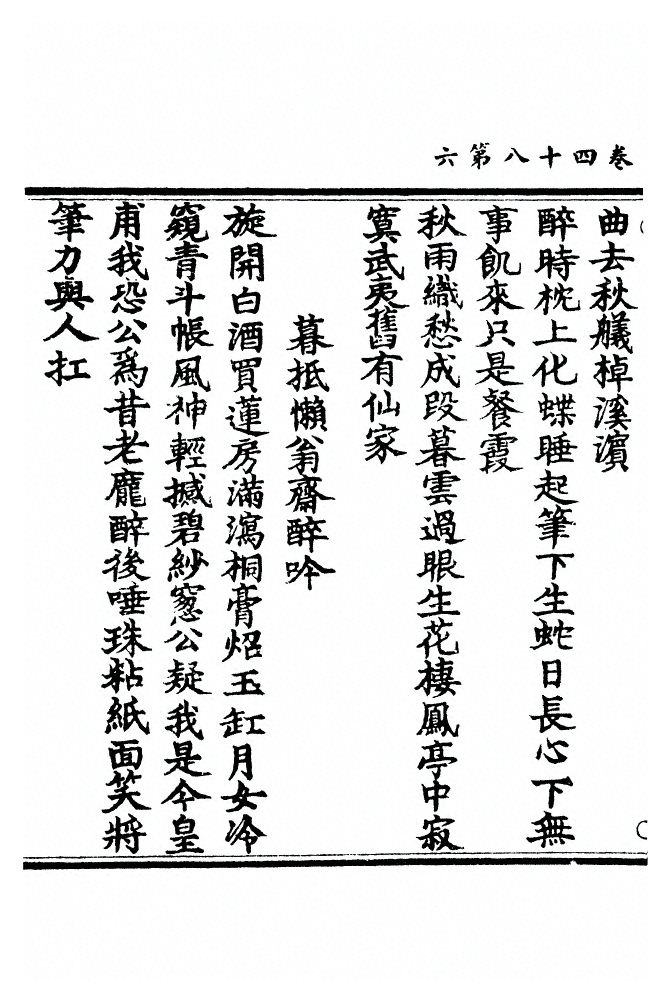 卷四十八第六
曲去秋艤棹溪濱
醉時枕上化蝶睡起筆下生蛇日長心下無
事飢來只是餐霞
秋雨織愁成段暮雲過眼生花棲鳳亭中寂
寞武夷舊有仙家
暮抵懶翁齋醉吟
旋開白酒買蓮房滿瀉桐膏炤玉缸月女冷
窺青斗帳風神輕撼碧紗窓公疑我是今皇
甫我恐公爲昔老龐醉後唾珠粘紙面笑將
筆力與人扛